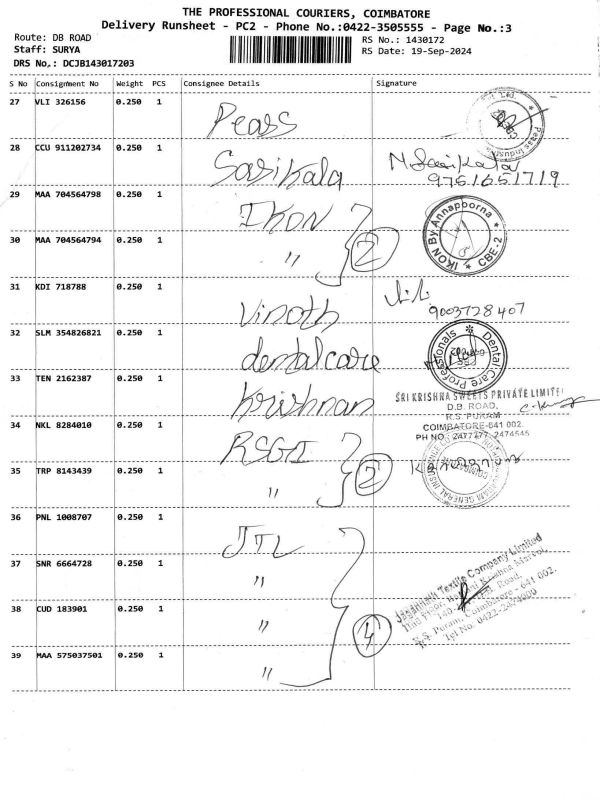 THE PROFESSIONAL COURIERS, COIMBATORE
Delivery Runsheet - PC2 - Phone No.:0422-3505555 - Page No.:3
Route: DB ROAD
RS No.: 1430172
Staff: SURYA
RS Date: 19-Sep-2024
DRS No,: DCJB143017203
S No Consignment No Weight PCS Consignee Details Signature
27 VLI 326156 0.250 1 Pears
28 CCU 911202734 0.250 1 Sasikala N. Sasikala
9751651719
29 MAA 704564798 0.250 1 IKON
IKON By Annapoorna * CBE-2 *
30 MAA 704564794 0.250 1 " 2
31 KDI 718788 0.250 1 Vinoth
9003728407
32 SLM 354826821 0.250 1 dental care
Dental Care Professionals *
33 TEN 2162387 0.250 1 Krishnan
SRI KRISHNA SWEETS PRIVATE LIMITED
D.B. ROAD,
R.S. PURAM
COIMBATORE-641 002.
PH NO. 2477277, 2474545
34 NKL 8284010 0.250 1 RSGI
35 TRP 8143439 0.250 1 " 2
36 PNL 1008707 0.250 1 JTL
37 SNR 6664728 0.250 1 "
Jagannath Textile Company Limited
R.S. Puram, Coimbatore - 641 002.
38 CUD 183901 0.250 1 " 4
39 MAA 575037501 0.250 1 "